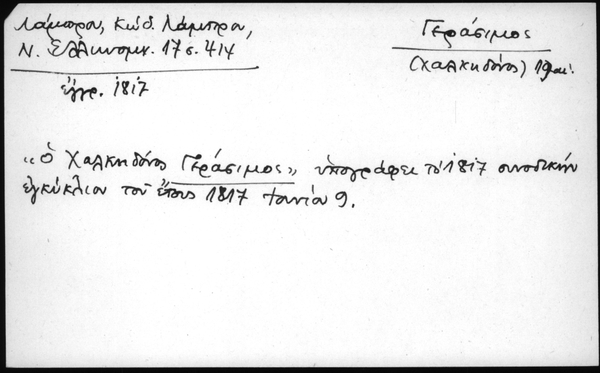 Λάμπρου, Κώδ Λάμπρου,
Ν. Ελληνομν. 17 σ. 414
έγγρ. 1817
Γεράσιμος
(Χαλκηδόνος) 19ου αι.
"ὁ Χαλκηδόνος Γεράσιμος" ὑπογράφει τὸ 1817 συνοδικήν
ἐγκύκλιον τοῦ ἔτους 1817 Ἰουνίου 9.